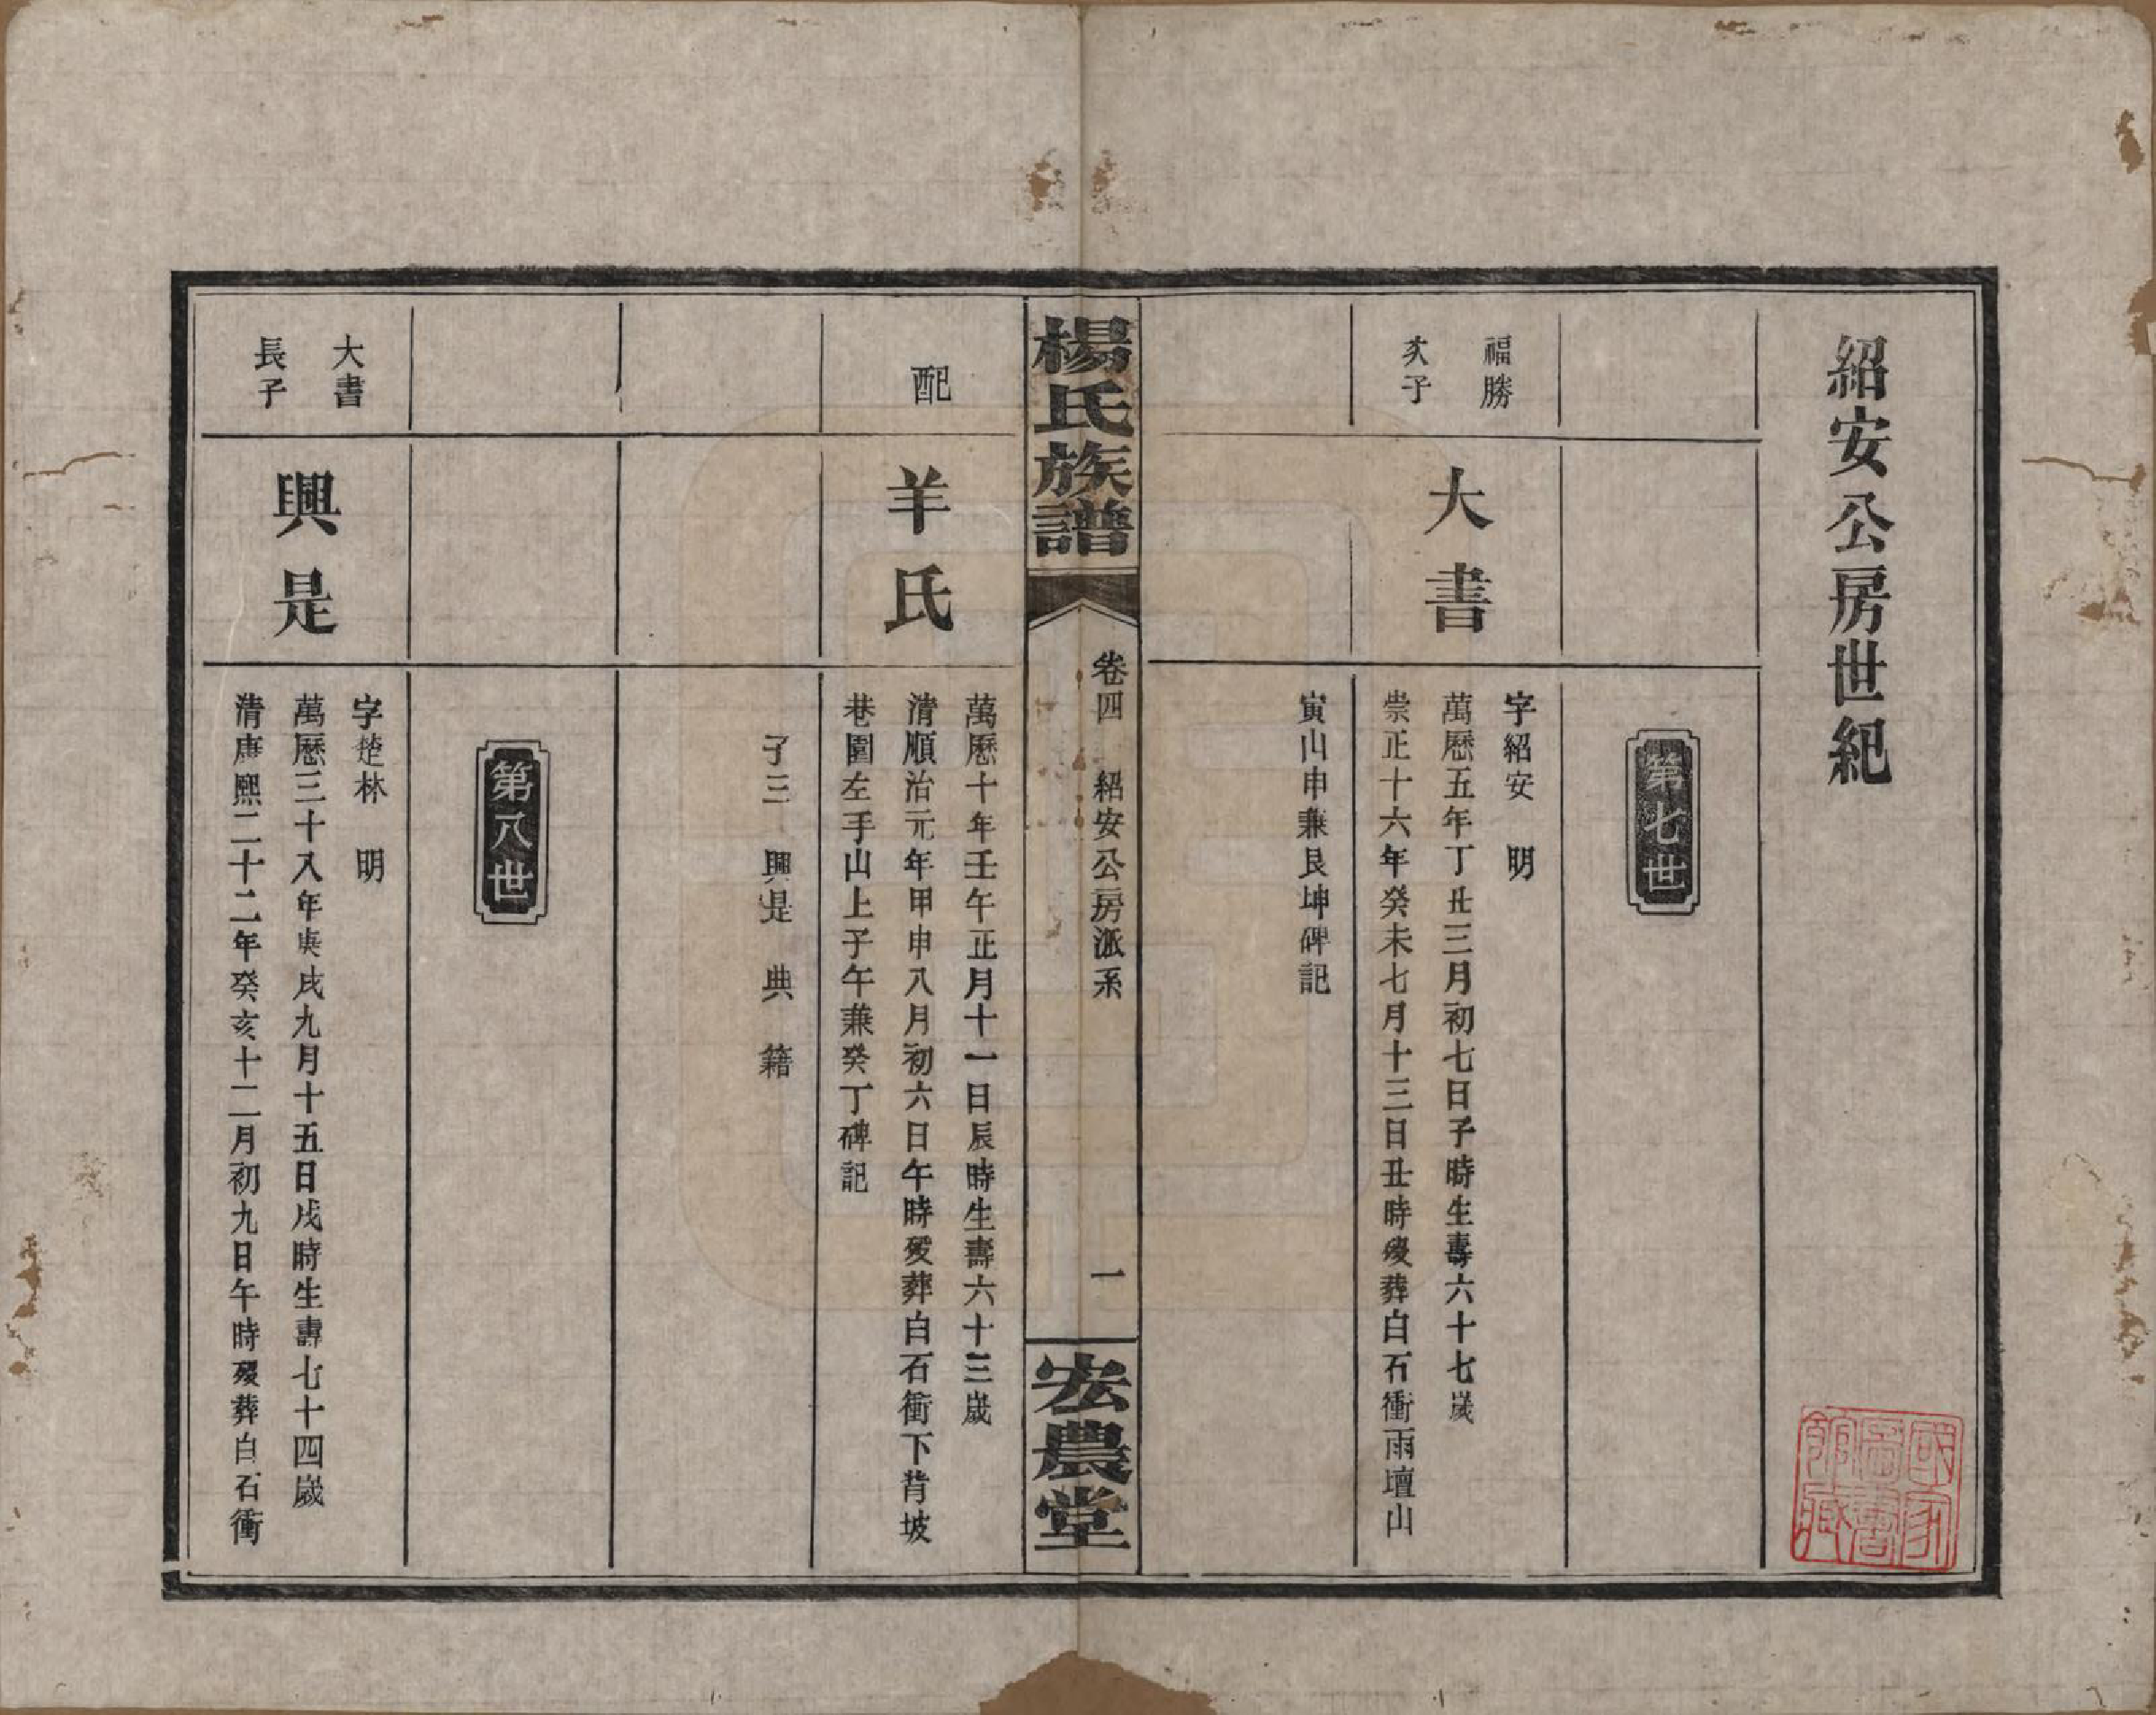 紹安公房世紀
第七世
福勝
次子
大書
字紹安　明
萬曆五年丁丑三月初七日子時生壽六十七歲
崇正十六年癸未七月十三日丑時歿葬白石衝雨壇山
寅山申兼艮坤碑記
楊氏族譜
卷四　紹安公房派系
一
宏農堂
配
羊氏
萬曆十年壬午正月十一日辰時生壽六十三歲
清順治元年甲申八月初六日午時歿葬白石衝下背坡
巷圍左手山上子午兼癸丁碑記
子三　興是　典　籍
第八世
大書
長子
興是
字楚林　明
萬曆三十八年庚戌九月十五日戌時生壽七十四歲
清康熙二十二年癸亥十二月初九日午時歿葬白石衝
國家
圖書
館藏